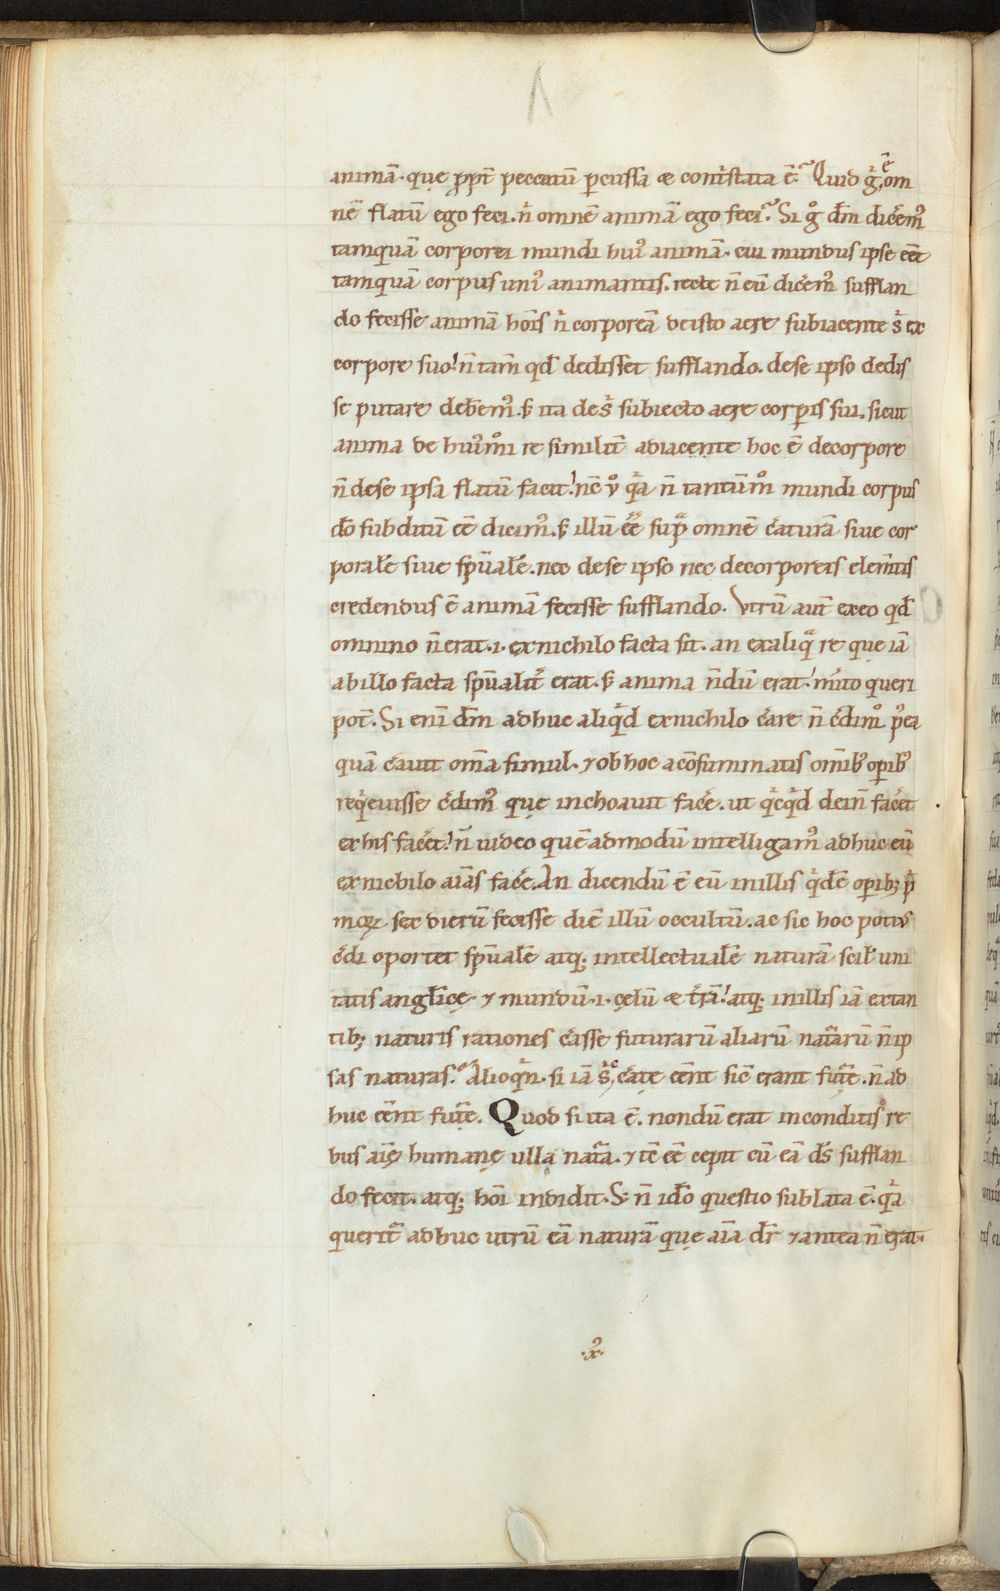 animā. quę ꝓpt̄ peccatū percussa & contristata ē. Quid g̊ ē, om
nē flatū ego feci. n̄ omnē animā ego feci? Si g̊ dm̄ dicem᷒
tamquā corporei mundi hui᷒ animā. cui mundus ipse eēt
tamquā corpus uni᷒ animantis. recte n̄ eū dicem᷒ sufflan
do fecisse animā hōis n̄ corporeā deisto aere subiacente s; ex
corpore suo! n̄ tam̄ qd̄ dedisset sufflando. dese ipso dedis
se putare debem᷒. s; ita de s; subiecto aere corporis sui. sicut
anima de hui᷒mōi re similit̄ adiacente hoc ē decorpore
n̄ dese ipsa flatū facit! nē ů qͥa n̄ tantūmͦ mundi corpus
dō subditū eē dicim᷒. s; illū eē supͣ omnē c̓aturā siue cor
poralē siue sp̄ualē. nec dese ipso nec decorporeis elem̄tis
credendus ē animā fecisse sufflando. Vtrū aut̄ exeo qd̄
omnino n̄ erat .i. exnichilo facta sit. an exaliqͣ re quę iā
abillo facta sp̄ualit̄ erat. s; anima n̄dū erat! mito queri
pot̄. Si eni dm̄ adhuc aliqͥd exnichilo c̓are n̄ c̓dim᷒ p᷒ea
quā c̓auit om̄a simul. ⁊ obhoc acōsummatis om̄ib᷒ opib᷒
reqͥeuisse c̓dim᷒ quę inchoauit fac̓e. ut qͥcqͥd dein̄ fac̓et
exhis fac̓et! n̄ uideo quēadmodū intelligam᷒ adhuc eū
exnichilo aīas fac̓e. An dicendū ē eū inillis qͥdē opib; pͥ
morꝝ sex dierū fecisse diē illū occultū. ac sic hoc potius
c̓di oportet sp̄ualē atq; intellectualē naturā scił uni
tatis anglicę ⁊ mundū .i. cęlū & t̄rā! atq; inillis iā extan
tib; naturis rationes c̓asse futurarū aliarū nat̄arū n̄ ip
sas naturas. Alioqͥn. si iā s;, c̓atę eēnt sic̄ erant fut̄ę. n̄ ad
huc eēnt fut̄ę. Quod si ita ē. nondū erat inconditis re
bus aīę humanę ulla nat̄a. ⁊ t̄c eē cepit cū eā ds̄ sufflan
do fecit. atq; hōi indidit. S; n̄ idō questio sublata ē. qͥa
querit̄ adhuc utrū eā naturā quę aīa dr̄ ⁊ antea n̄ erat.
.x᷒.